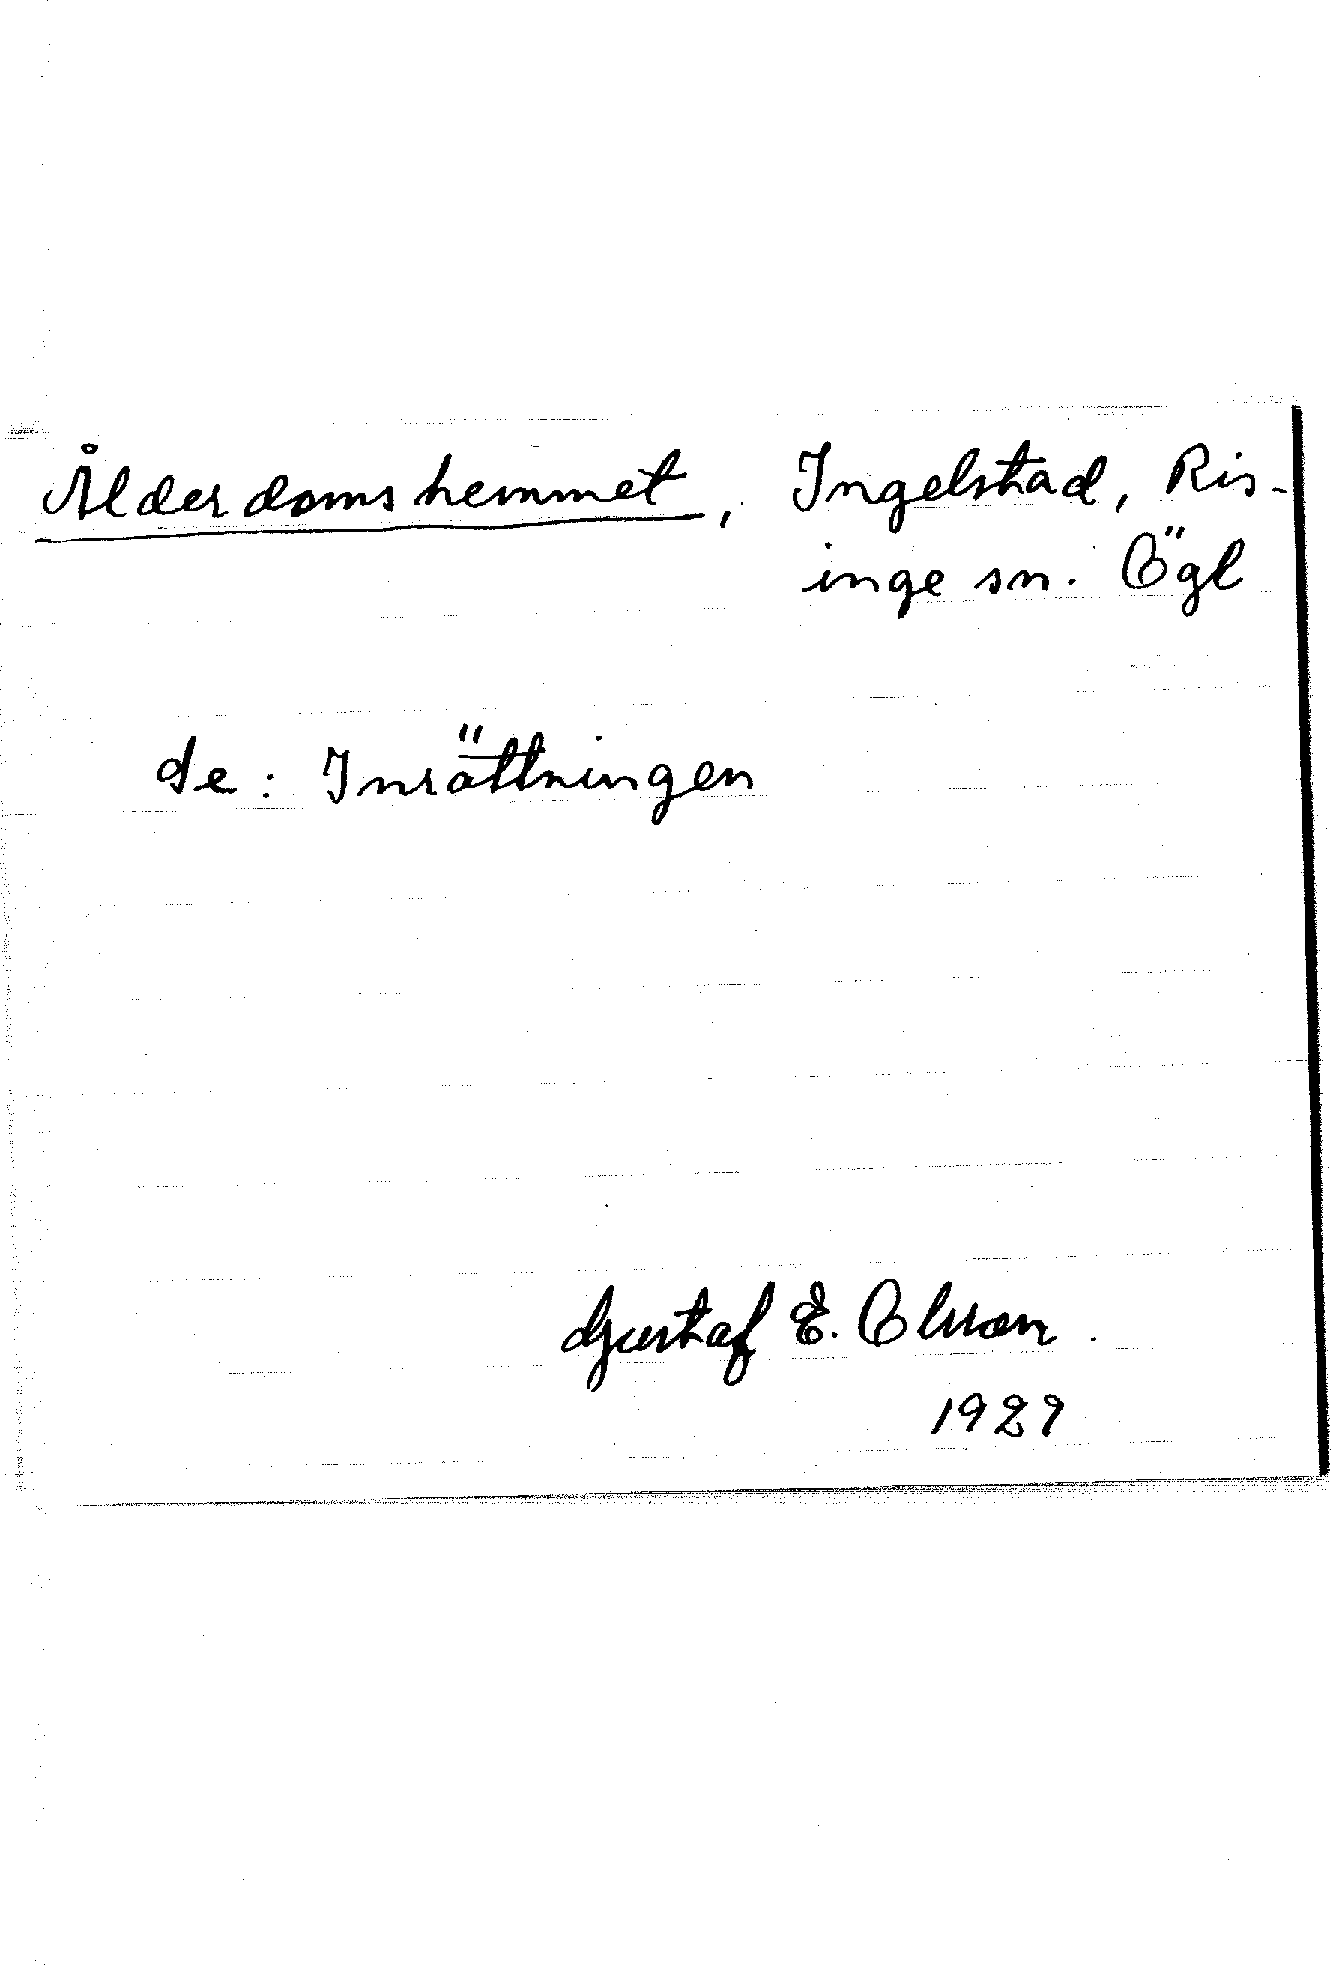 Ålderdomshemmet, Ingelstad, Ris-
inge sn. Ögl
Se: Inrättningen
Gustaf E. Olsson
1929